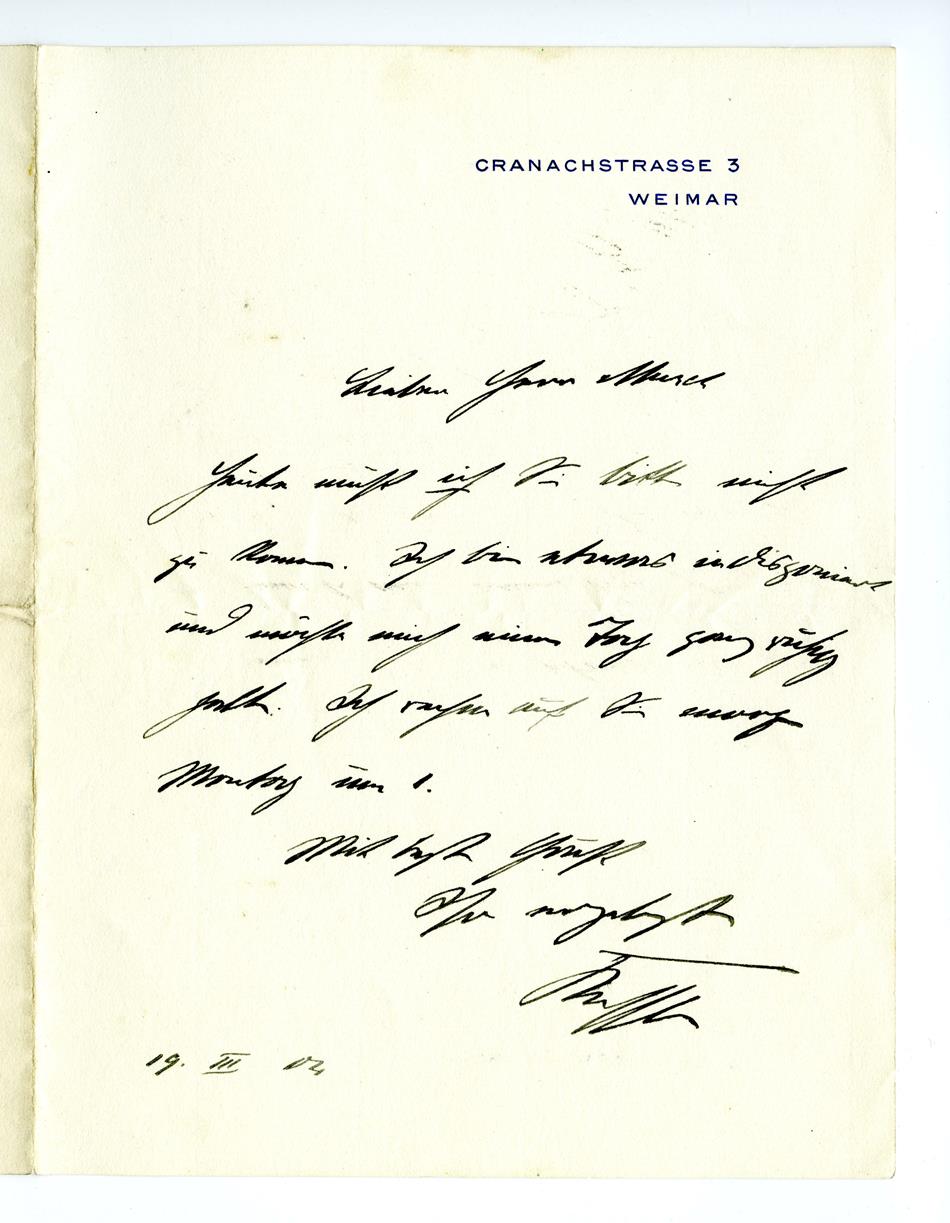 CRANACHSTRASSE 3
WEIMAR
Lieber Herr Munch
Heute muß ich Sie bitten nicht
zu kommen. Ich bin etwas indisponiert
und möchte mich einen Tag ganz ruhig
halten. Ich rechne auf Sie morgen
Montag um 1.
Mit besten Grüßen
Ihr ergebenster
Kessler
19. III 04